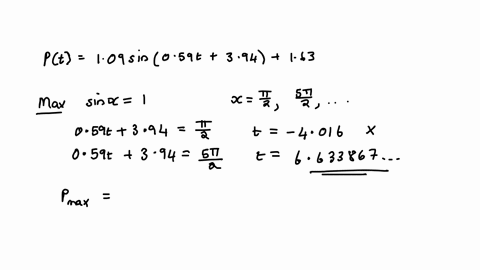 P(t) = 1.09 sin(0.59t + 3.94) + 1.63
Max sin x = 1 x = π/2, 5π/2, ...
0.59t + 3.94 = π/2 t = -4.016 x
0.59t + 3.94 = 5π/2 t = 6.633867...
Pmax =